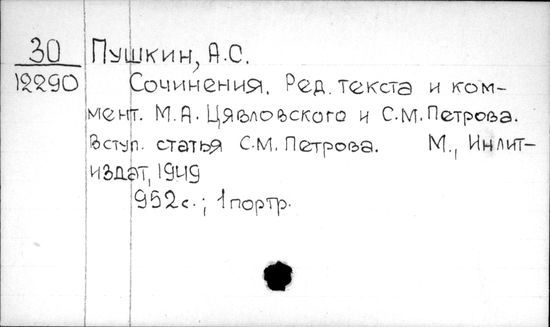 30 Пушкин, А.С.
12290 Сочинения. Ред. текста и ком-
мент. М.А. Цявловского и С.М. Петрова.
Вступ. статья С.М. Петрова. М., Инлит-
издат, 1949
952с.; 1 портр.